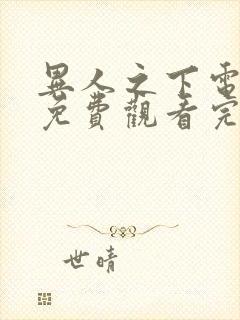 異人之下電
免費觀看完
世晴